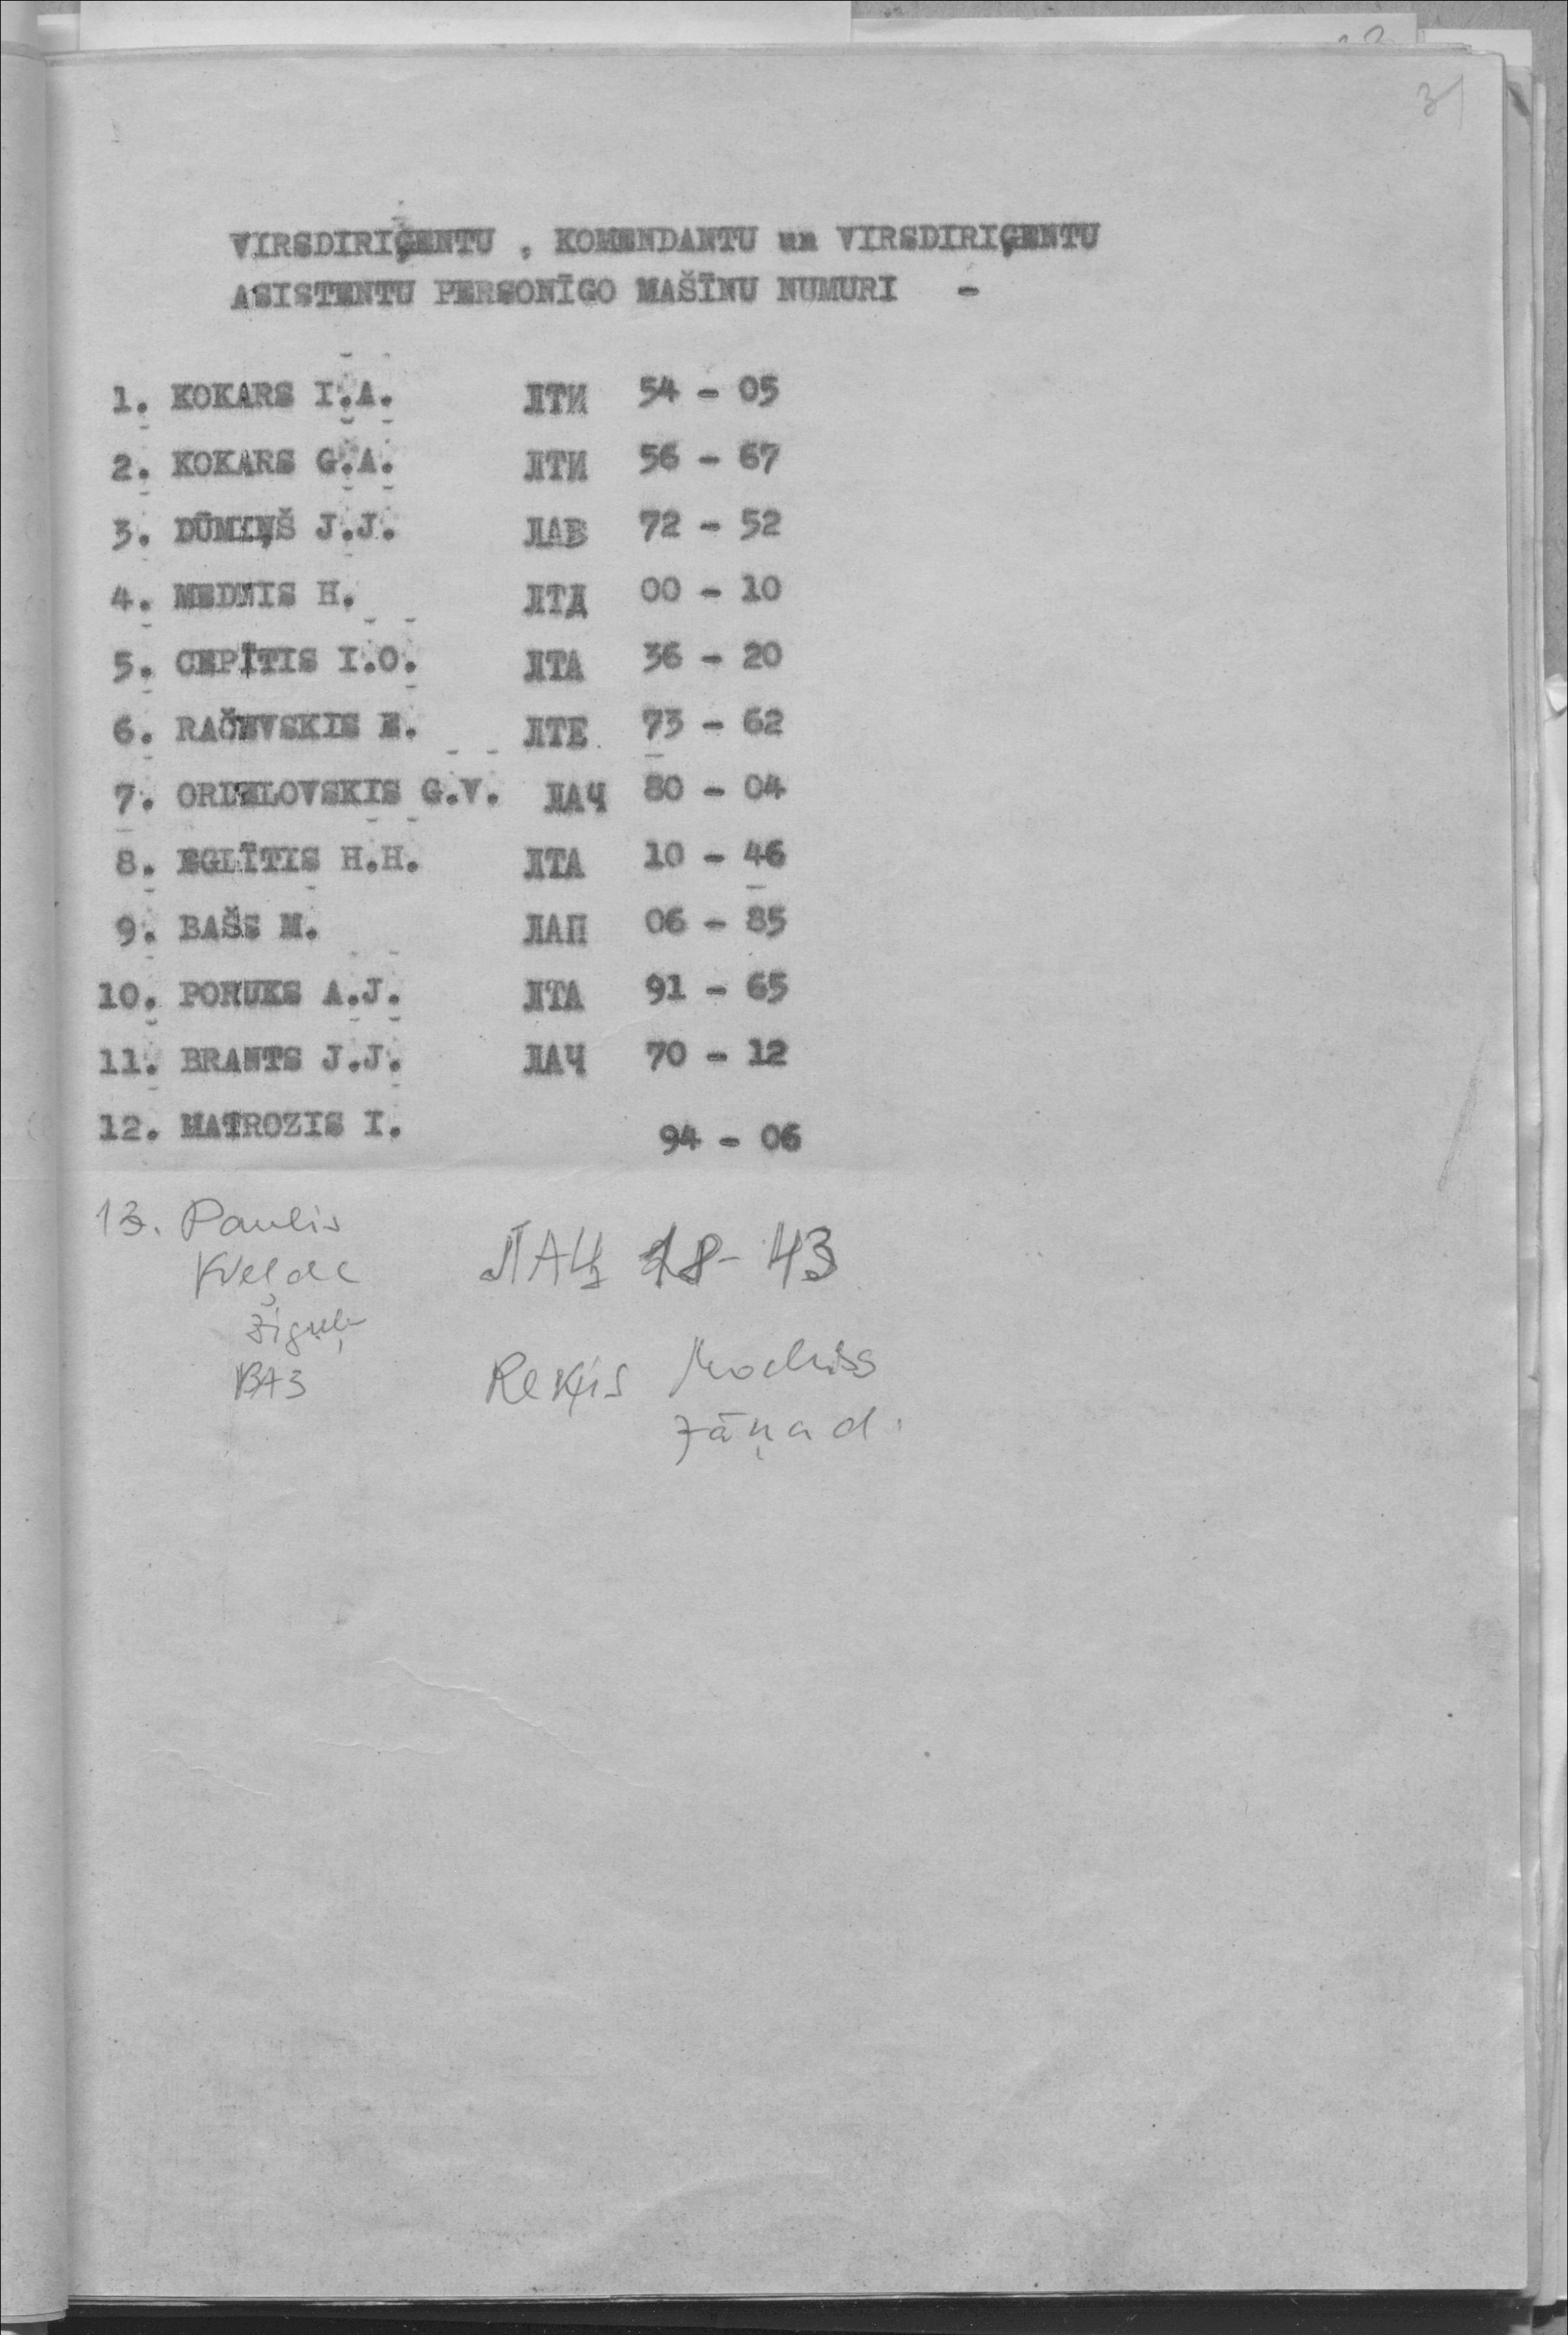 31
VIRSDIRIĢENTU , KOMENDANTU un VIRSDIRIĢENTU
ASISTENTU PERSONĪGO MAŠĪNU NUMURI -
1. KOKARS I.A. ЛТИ 54 - 05
2. KOKARS G.A. ЛТИ 56 - 67
3. DŪMIŅŠ J.J. ЛАВ 72 - 52
4. MEDNIS H. ЛТД 00 - 10
5. CEPĪTIS I.O. ЛТА 36 - 20
6. RAČEVSKIS E. ЛТЕ 73 - 62
7. ORDELOVSKIS G.V. ЛАЧ 80 - 04
8. EGLĪTIS H.H. ЛТА 10 - 46
9. BAŠS M. ЛАП 06 - 85
10. PORUKS A.J. ЛТА 91 - 65
11. BRANTS J.J. ЛАЧ 70 - 12
12. MATROZIS I. 94 - 06
13. Paulis
Kvelde ЛАЦ 18 - 43
Žiguļi
ВАЗ Reķis
Jāņa d.